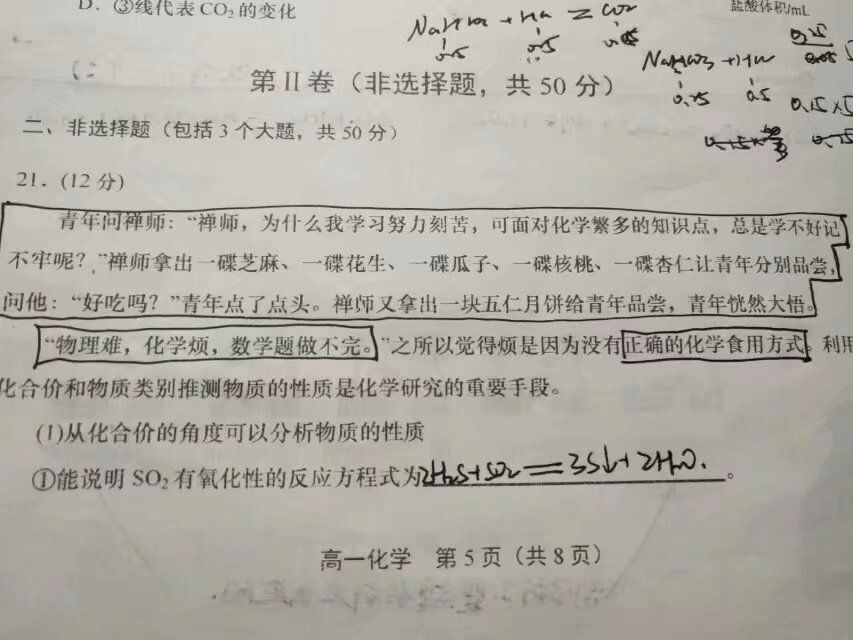 D. ③线代表 CO₂ 的变化
盐酸体积/mL
第Ⅱ卷（非选择题，共 50 分）
二、非选择题（包括 3 个大题，共 50 分）
21．(12 分)
青年问禅师：“禅师，为什么我学习努力刻苦，可面对化学繁多的知识点，总是学不好记
不牢呢？”禅师拿出一碟芝麻、一碟花生、一碟瓜子、一碟核桃、一碟杏仁让青年分别品尝，
问他：“好吃吗？”青年点了点头。禅师又拿出一块五仁月饼给青年品尝，青年恍然大悟。
“物理难，化学烦，数学题做不完。”之所以觉得烦是因为没有正确的化学食用方式。利用
化合价和物质类别推测物质的性质是化学研究的重要手段。
(1)从化合价的角度可以分析物质的性质
①能说明 SO₂ 有氧化性的反应方程式为2H₂S+SO₂=3S↓+2H₂O.。
高一化学 第 5 页（共 8 页）